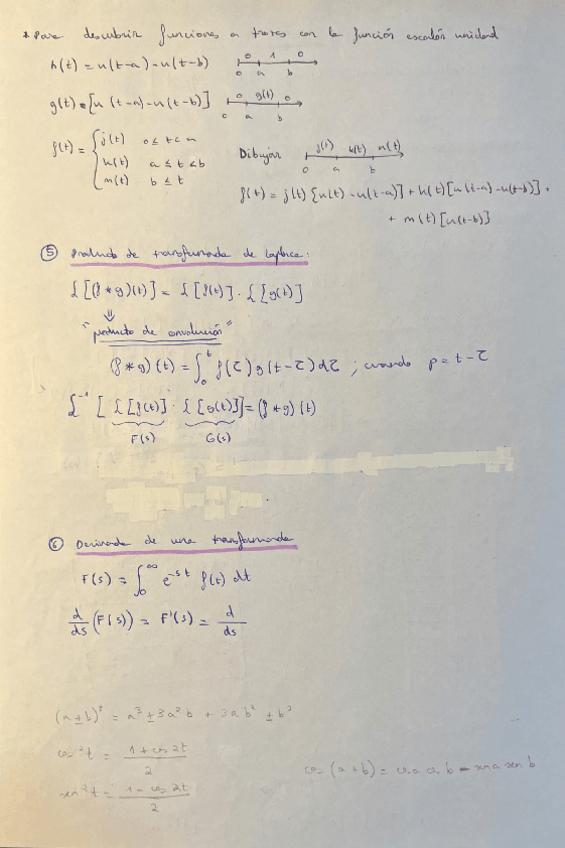 * Para descubrir funciones a traves con la función escalón unidad
h(t) = u(t-a) - u(t-b)
0 1 0
0 a b
g(t) = [u(t-a) - u(t-b)]
0 g(t) 0
0 a b
f(t) = { j(t) 0 ≤ t < a
h(t) a ≤ t < b
m(t) b ≤ t
Dibujar
j(t) h(t) m(t)
0 a b
f(t) = j(t) [u(t) - u(t-a)] + h(t) [u(t-a) - u(t-b)] +
+ m(t) [u(t-b)]
⑤ Producto de transformada de Laplace:
ℒ[(f*g)(t)] = ℒ[f(t)] · ℒ[g(t)]
⇓
"producto de convolución"
(f*g)(t) = ∫₀ᵗ f(τ) g(t-τ) dτ ; cuando p = t - τ
ℒ⁻¹ [ ℒ[f(t)] · ℒ[g(t)]] = (f*g)(t)
F(s) G(s)
⑥ Derivada de una transformada
F(s) = ∫₀^∞ e^-st f(t) dt
d/ds (F(s)) = F'(s) = d/ds
(a±b)³ = a³ ± 3a²b + 3ab² ± b³
cos²t = 1 + cos 2t / 2
sen²t = 1 - cos 2t / 2
cos (a+b) = cos a cos b - sen a sen b